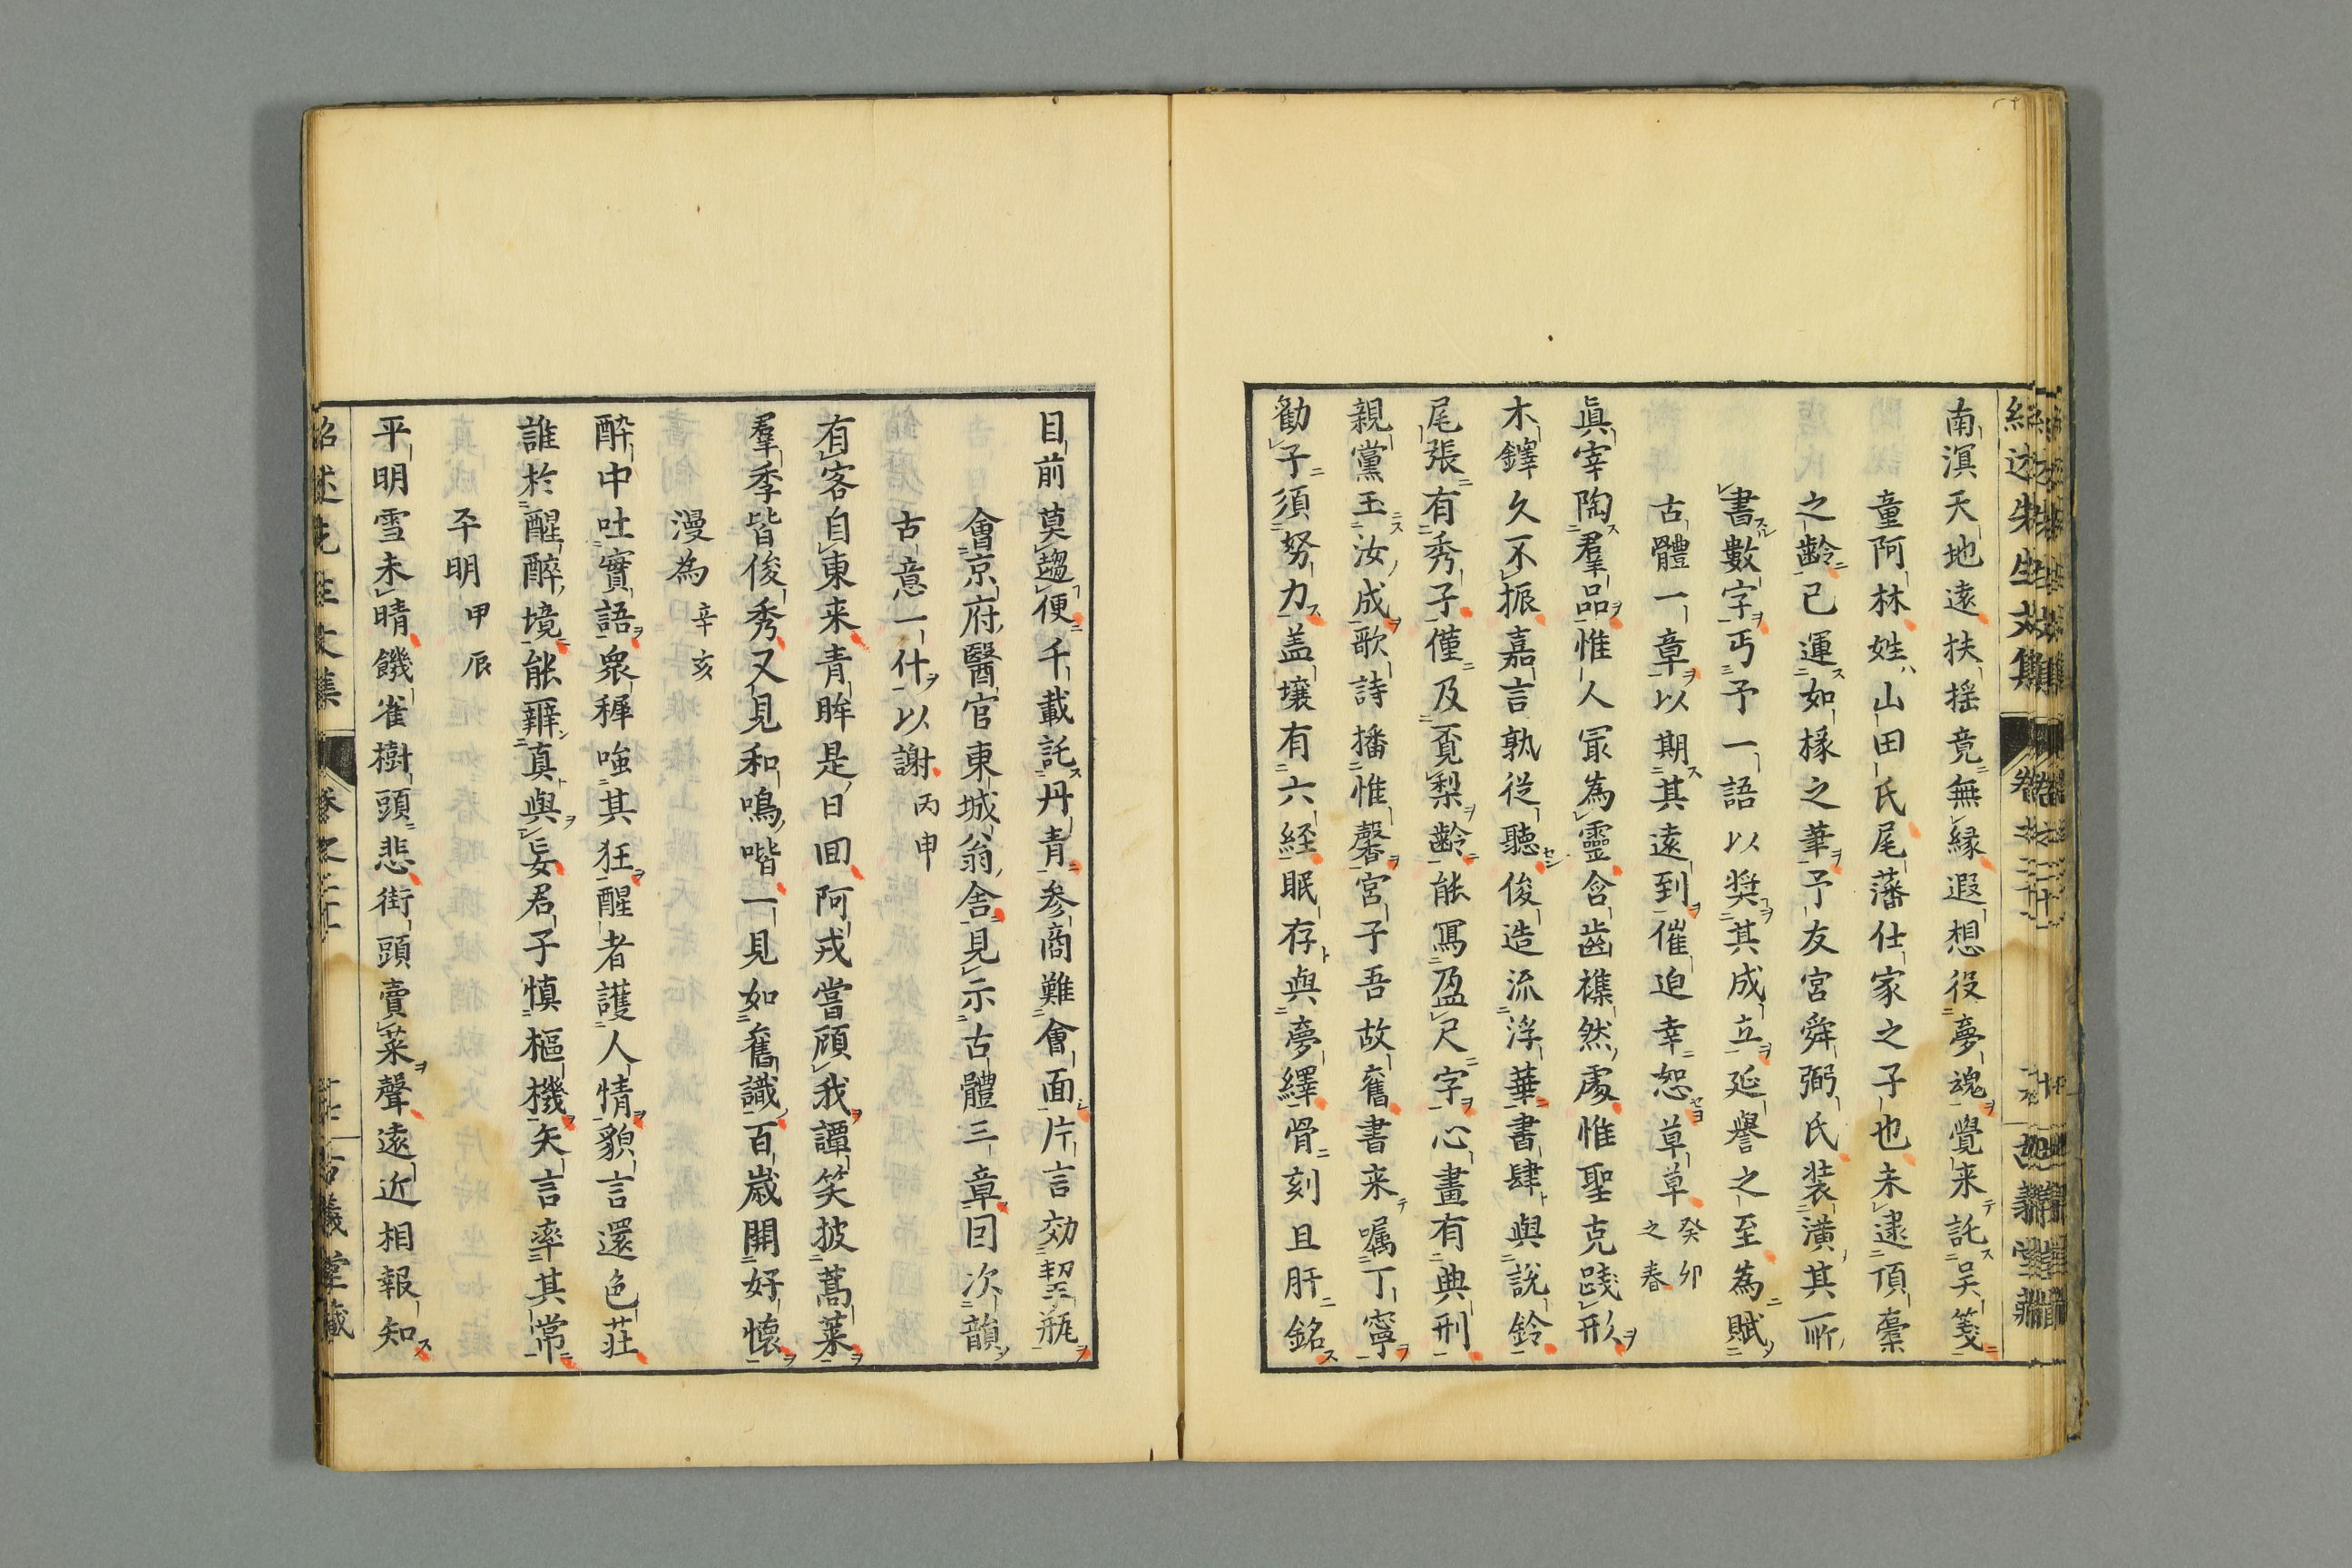 南溟天地遠扶揺竟無縁遐想役夢魂覺来託吴箋
童阿林姓山田氏尾藩仕家之子也未逮頂橐
之齡已運如椽之筆予友宮舜弼氏装潢其所
書數字丐予一語以奨其成立延譽之至為賦
古體一章以期其遠到催迫幸恕草草癸卯之春
眞宰陶羣品惟人冣為靈含齒襍然處惟聖克踐形
木鐸久不振嘉言孰従聽俊造流浮華書肆與說鈴
尾張有秀子僅及覔梨齡能冩盈尺字心畫有典刑
親黨玉汝成歌詩播惟馨宮子吾故舊書来嘱丁寧
勧子須努力盖壌有六経眠存與夢繹骨刻且肝銘
目前莫趨便千載託丹青参商難會面片言効挈瓶
會京府醫官東城翁舎見示古體三章囙次韻
古意一什以謝丙申
有客自東来青眸是日囬阿戎當顧我譚笑披蒿莱
羣季皆俊秀又見和鳴喈一見如舊識百歳開好懐
漫為辛亥
酔中吐實語衆穉嗤其狂醒者護人情貌言還色莊
誰於醒醉境能辨真與妄君子慎樞機矢言率其常
平明甲辰
平明雪未晴饑雀樹頭悲街頭賣菜聲遠近相報知